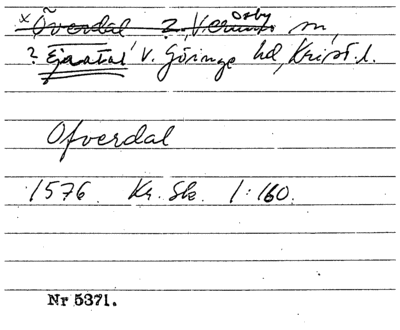 x Överdal ? Verums Osby sn,
? Ejaatal V. Göinge hd, Krist. l.
Ofverdal
1576 Kr. Sk. 1:160.
Nr 5371.